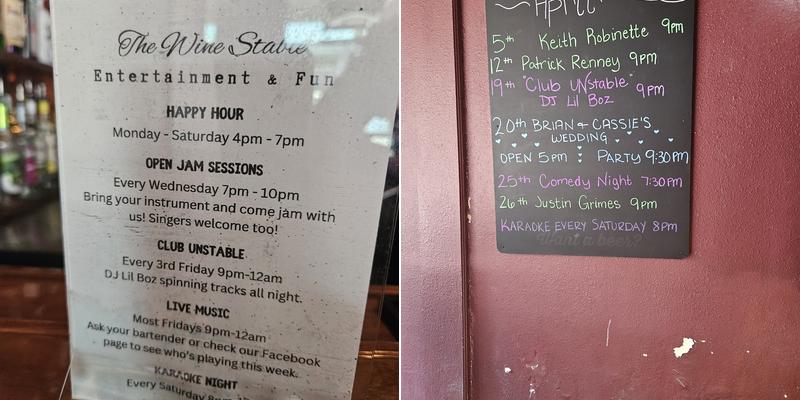 The Wine Stable
Entertainment & Fun
HAPPY HOUR
Monday - Saturday 4pm - 7pm
OPEN JAM SESSIONS
Every Wednesday 7pm - 10pm
Bring your instrument and come jam with
us! Singers welcome too!
CLUB UNSTABLE
Every 3rd Friday 9pm-12am
DJ Lil Boz spinning tracks all night.
LIVE MUSIC
Most Fridays 9pm-12am
Ask your bartender or check our Facebook
page to see who's playing this week.
KARAOKE NIGHT
Every Saturday 8pm
April
5th Keith Robinette 9pm
12th Patrick Renney 9pm
19th "Club UNstable" 9pm
DJ Lil Boz
20th BRIAN & CASSIE'S
WEDDING
OPEN 5pm : PARTY 9:30PM
25th Comedy Night 7:30pm
26th Justin Grimes 9pm
KARAOKE EVERY SATURDAY 8PM
Want a beer?